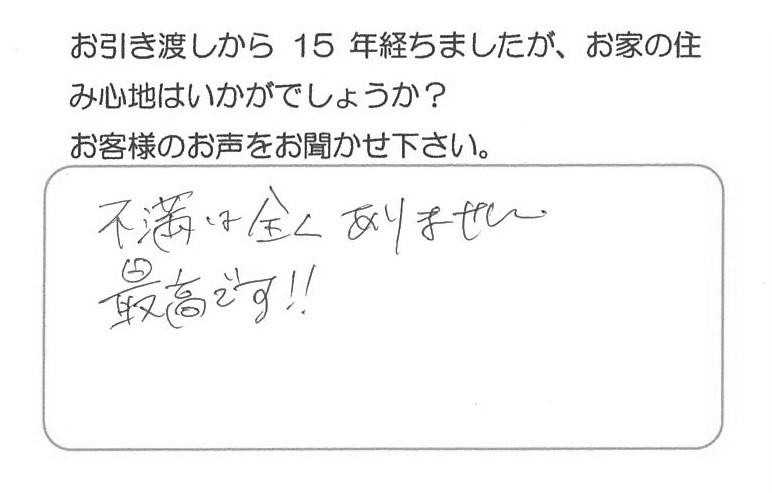 お引き渡しから 15 年経ちましたが、お家の住
み心地はいかがでしょうか？
お客様のお声をお聞かせ下さい。
不満は全くありません
最高です!!